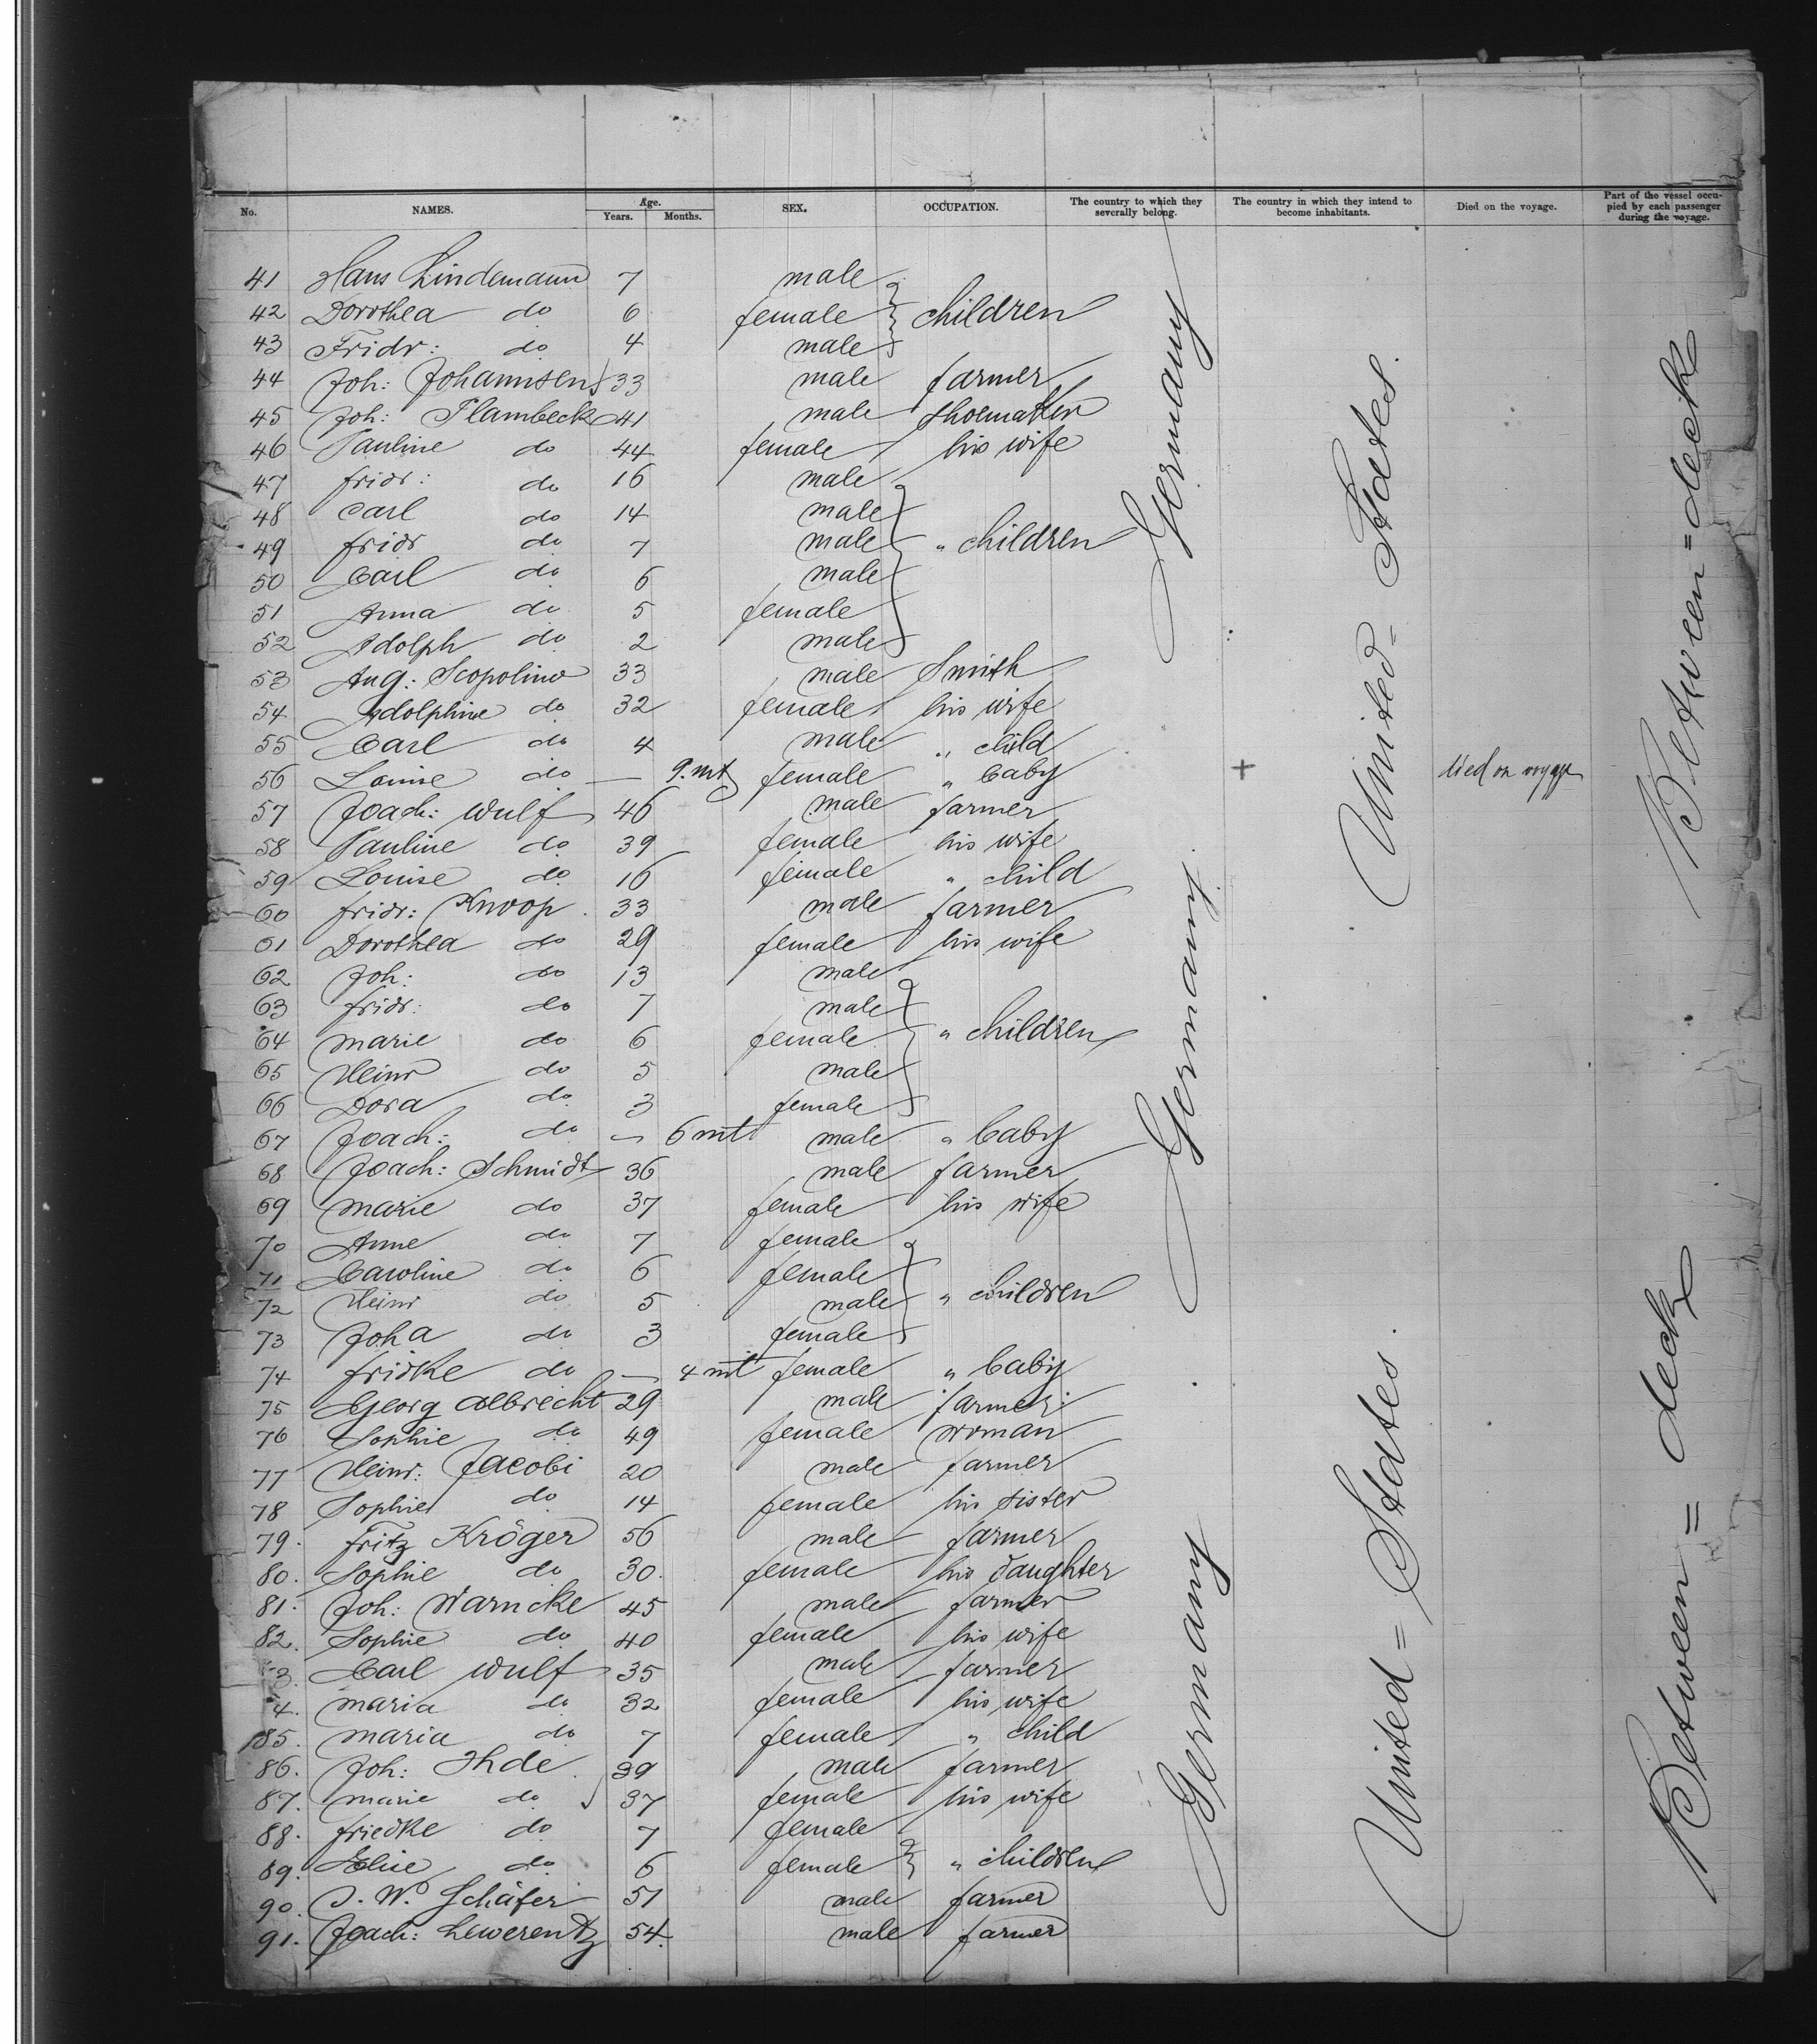 No. NAMES. Age. Years. Months. SEX. OCCUPATION. The country to which they severally belong. The country in which they intend to become inhabitants. Died on the voyage. Part of the vessel occupied by each passenger during the voyage.
41 Hans Lindemann 7 male
42 Dorothea do 6 female children
43 Fridr: do 4 male
44 Joh: Johannsen 33 male farmer
45 Joh: Flambeck 41 male shoemaker
46 Pauline do 44 female his wife
47 fridr: do 16 male
48 Carl do 14 male
49 fridr do 7 male " children
50 Carl do 6 male
51 Anna do 5 female
52 Adolph do 2 male
53 Aug: 33 male Smith
54 Adolphine do 32 female his wife
55 Carl do 4 male " child
56 Louise do — 9. mt female " baby + died on voyage
57 Joach: Wulf 46 male farmer
58 Pauline do 39 female his wife
59 Louise do 16 female " child
60 fridr: Knoop 33 male farmer
61 Dorothea do 29 female his wife
62 Joh: do 13 male
63 fridr: do 7 male
64 marie do 6 female " children
65 Heinr do 5 male
66 Dora do 3 female
67 Joach: do — 6 mt male " baby
68 Joach: Schmidt 36 male farmer
69 marie do 37 female his wife
70 Anne do 7 female
71 Caroline do 6 female
72 Heinr do 5 male " children
73 Joha do 3 female
74 fridke do — 4 mt female " baby
75 Georg Albrecht 29 male farmer
76 Sophie do 49 female woman
77 Heinr: Jacobi 20 male farmer
78 Sophie do 14 female his sister
79. Fritz Kröger 56 male farmer
80. Sophie do 30. female his daughter
81. Joh: Warncke 45 male farmer
82. Sophie do 40 female his wife
3. Carl Wulf 35 male farmer
4. maria do 32 female his wife
85. maria do 7 female " child
86. Joh: Ihde 39 male farmer
87. marie do 37 female his wife
88. friedke do 7 female
89. Elise do 6 female " children
90. J. W. Schäfer 51 male farmer
91. Joach: Lewerentz 54. male farmer
Germany
Germany
Germany
United = States.
United = States.
Between = deck
Between = deck